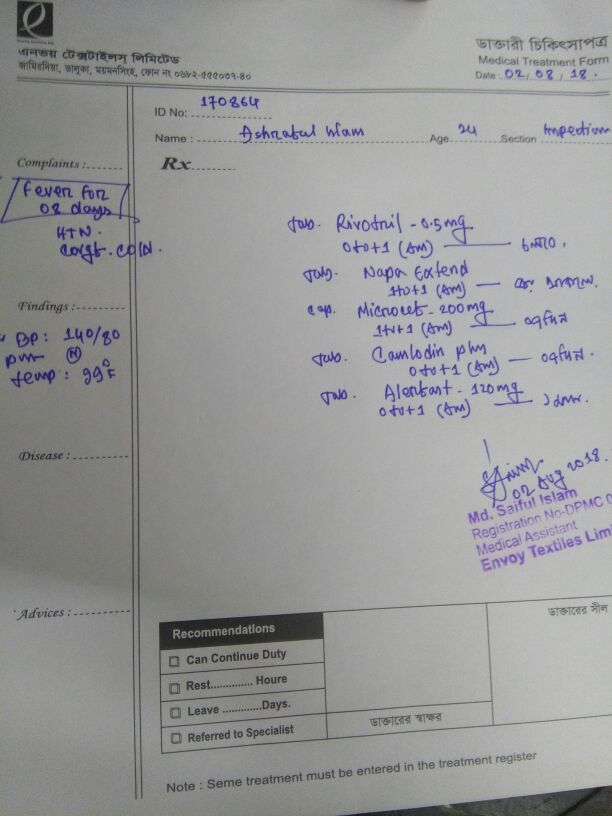 এনভয় টেক্সটাইলস্ লিমিটেড
জামিরদিয়া, ভালুকা, ময়মনসিংহ, ফোন নং ০৬৮২-৫৫৫০৩৭-৪০
ডাক্তারী চিকিৎসাপত্র
Medical Treatment Form
Date : 02, 08, 18.
ID No: 170864
Name : Age 24 Section
Complaints :
Rx
Fever for
02 days
HTN.
cold.
Tab. Rivotril - 0.5 mg
0+0+1 (Am)
Tab. Napa Extend
1+0+1 (Am)
Findings :
BP: 140/80
N
temp : 99°F
cap. - 200mg
1+0+1 (Am) ০৭ দিন
Tab. Camlodin plus
0+0+1 (Am) ০৭ দিন.
Tab. - 120mg
0+0+1 (Am)
Disease :
02 Aug 2018.
Md. Saiful Islam
Registration No-DPMC
Medical Assistant
Envoy Textiles Lim
Advices :
ডাক্তারের সীল
Recommendations
Can Continue Duty
Rest.............. Houre
Leave .............Days.
Referred to Specialist
ডাক্তারের স্বাক্ষর
Note : Seme treatment must be entered in the treatment register